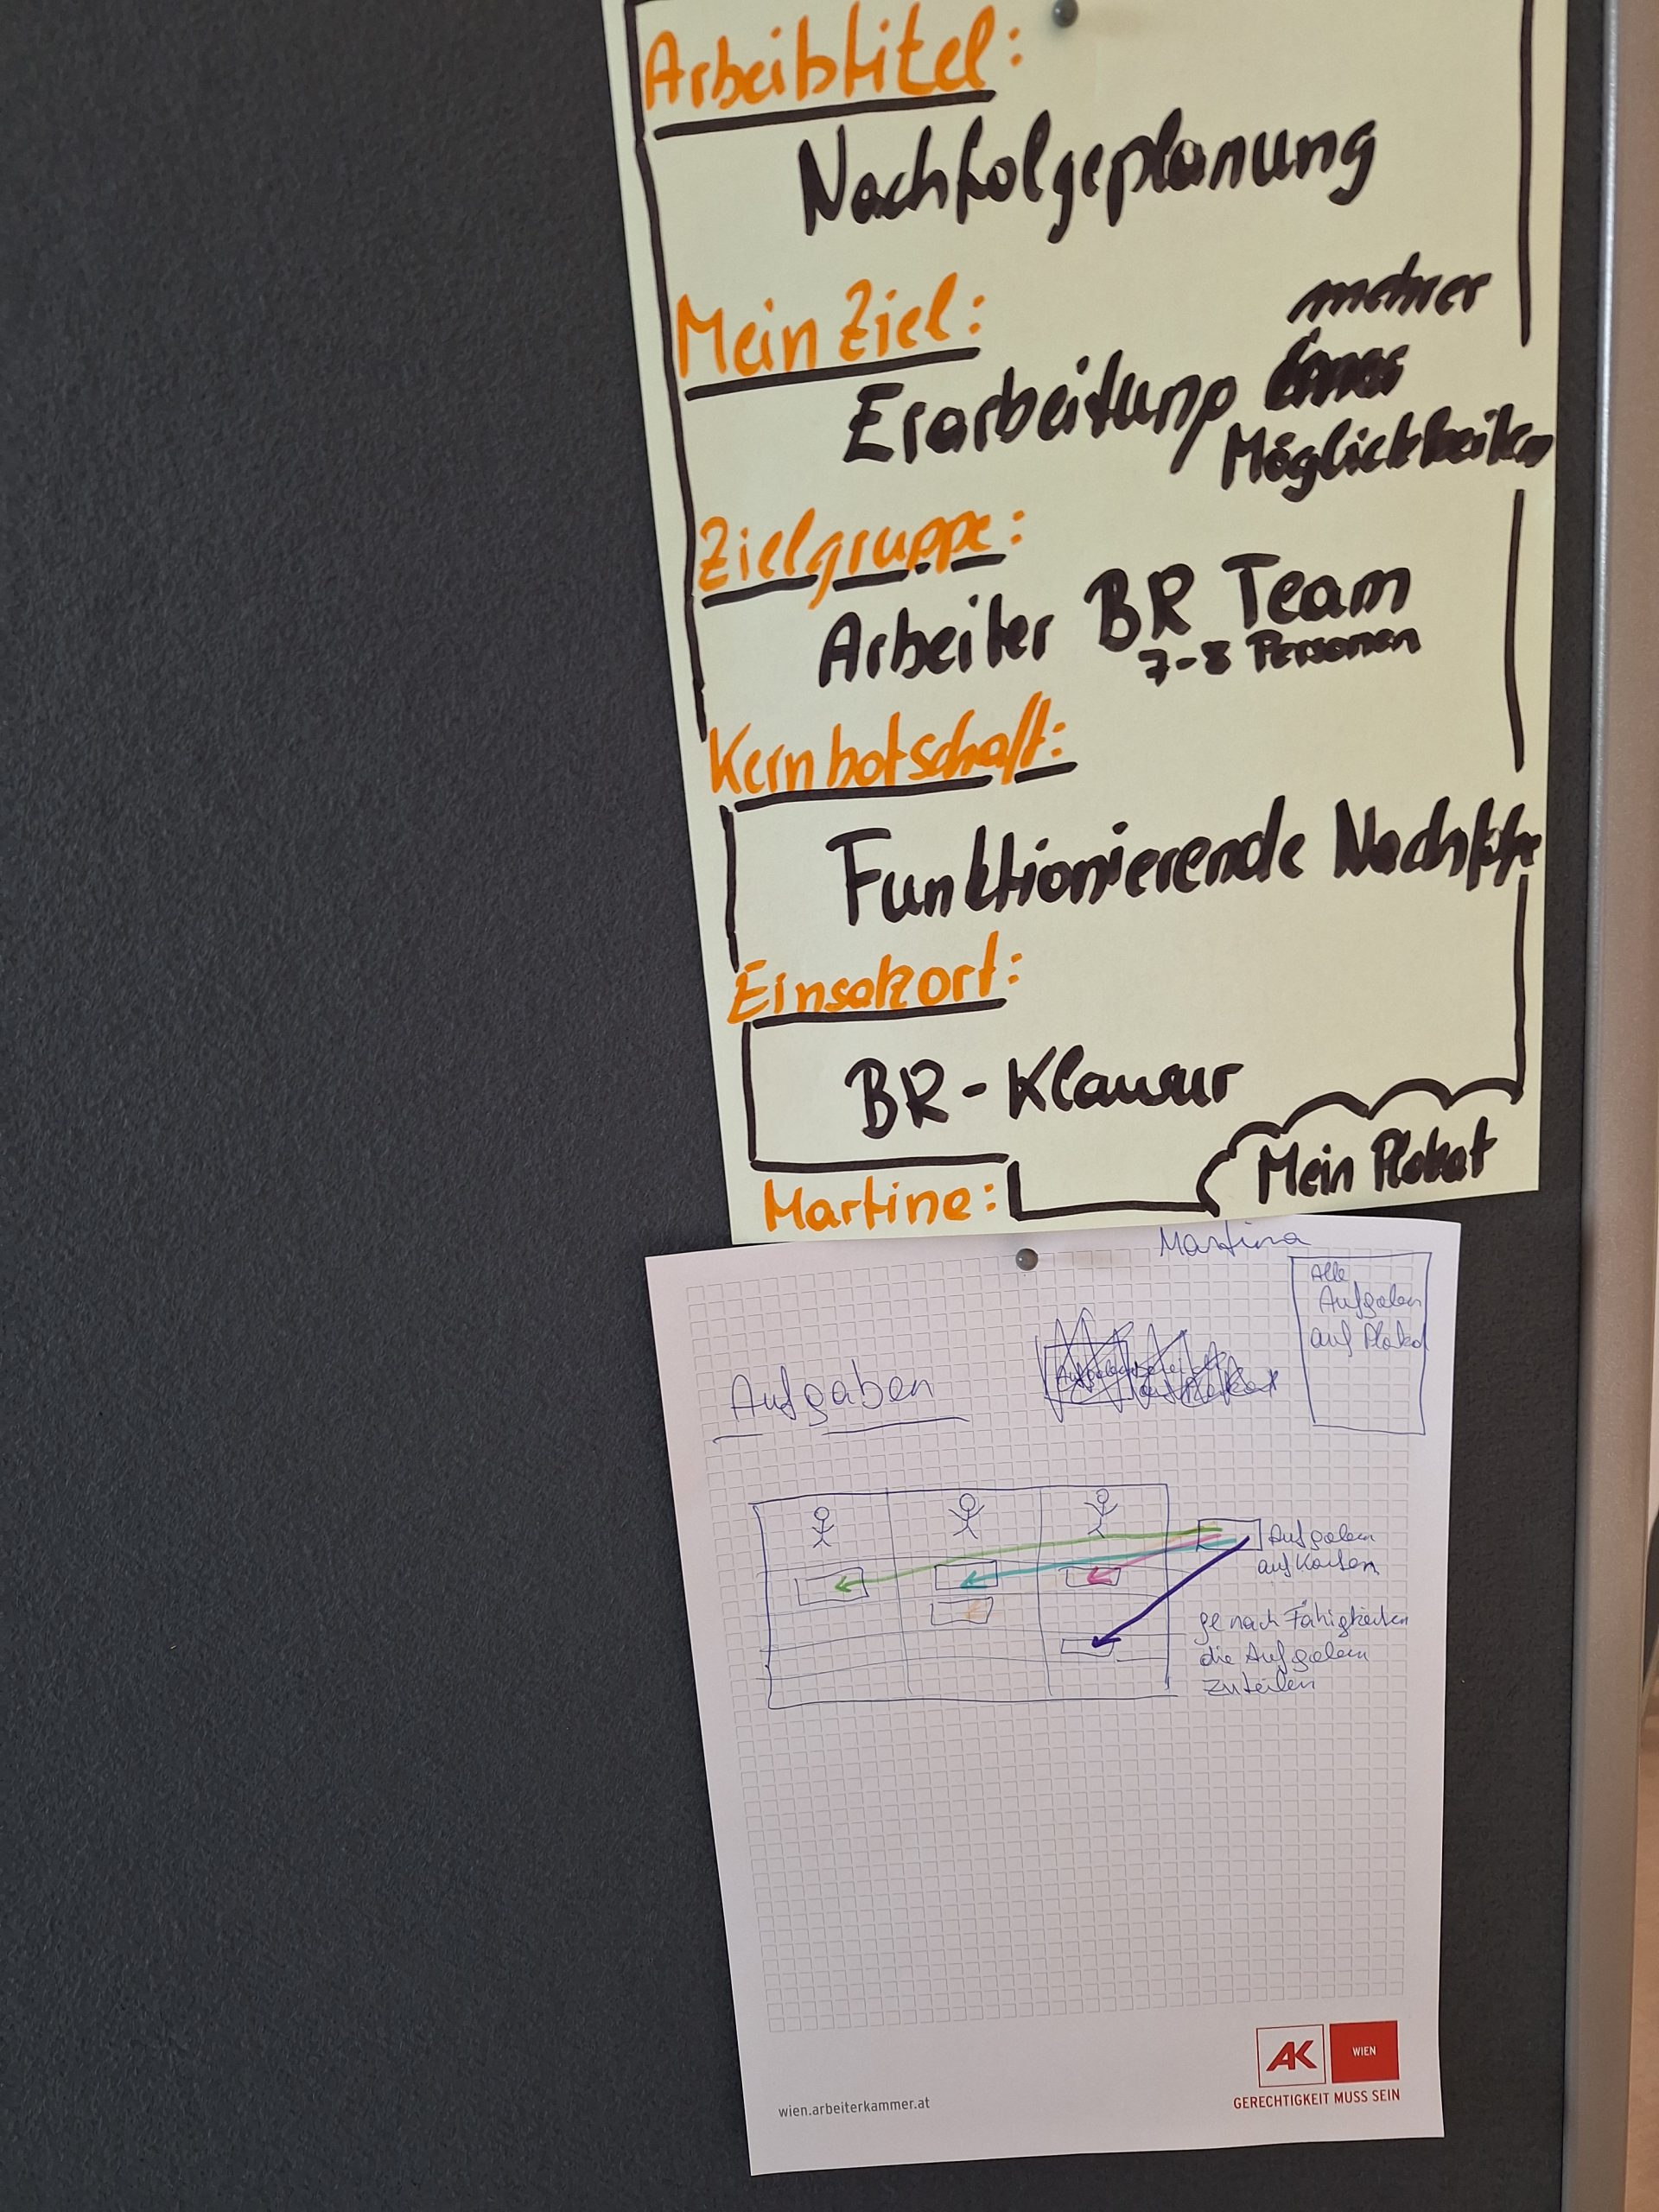 Arbeitstitel:
Nachfolgeplanung
Mein Ziel:
mehrer
Erarbeitung
Möglichkeiten
Zielgruppe:
Arbeiter BR Team
7-8 Personen
Kernbotschaft:
Funktionierende Nachfolge
Einsatzort:
BR-Klausur
Mein Plakat
Martine:
Martina
Alle
Aufgaben
auf Plakat
Aufgaben
Aufgaben
auf Karten
je nach Fähigkeiten
die Aufgaben
zuteilen
AK
WIEN
GERECHTIGKEIT MUSS SEIN
wien.arbeiterkammer.at